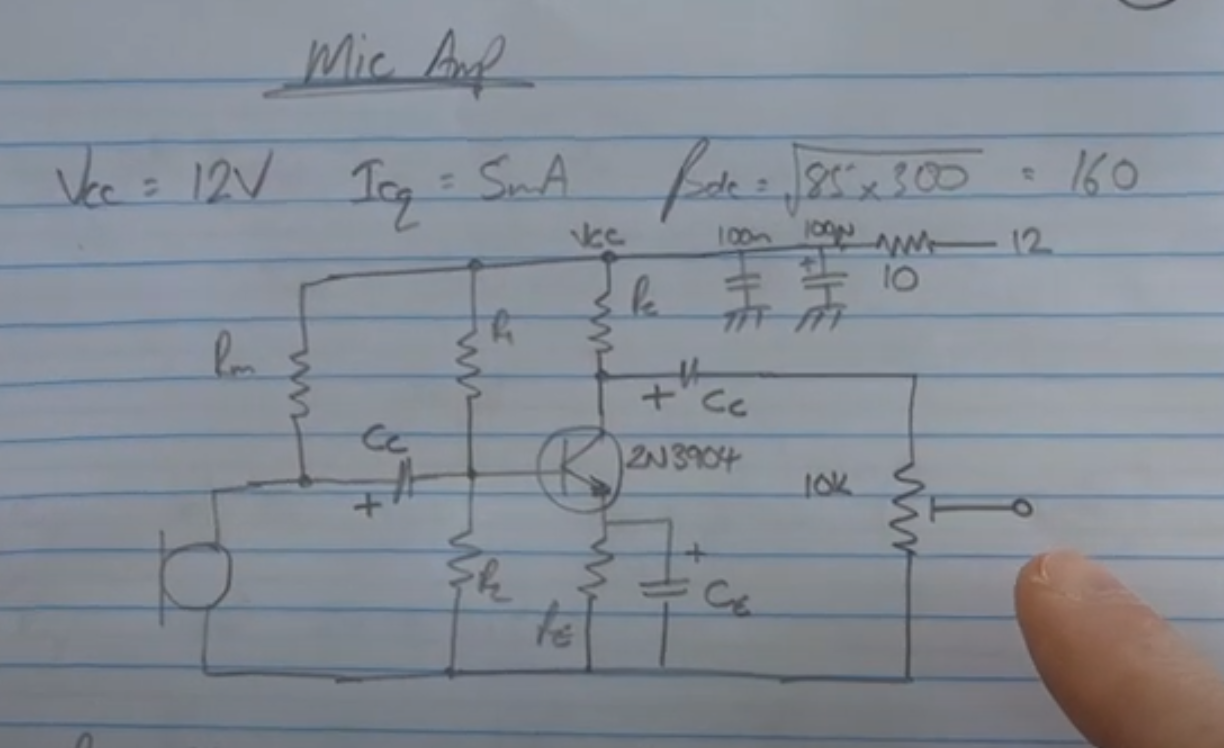 Mic Amp
Vcc = 12V Icq = 5mA βdc = √85 x 300 = 160
Vcc 100n 100µ 12
10
R1 Rc
Rm
+ Cc
Cc
+
2N3904
10K
R2
+
CE
RE